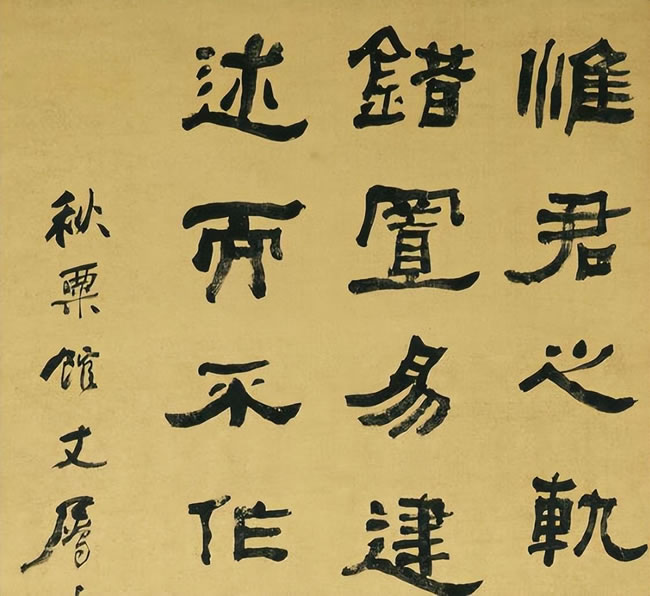 惟君之軌
錯置易建
述而不作
秋粟館丈屬